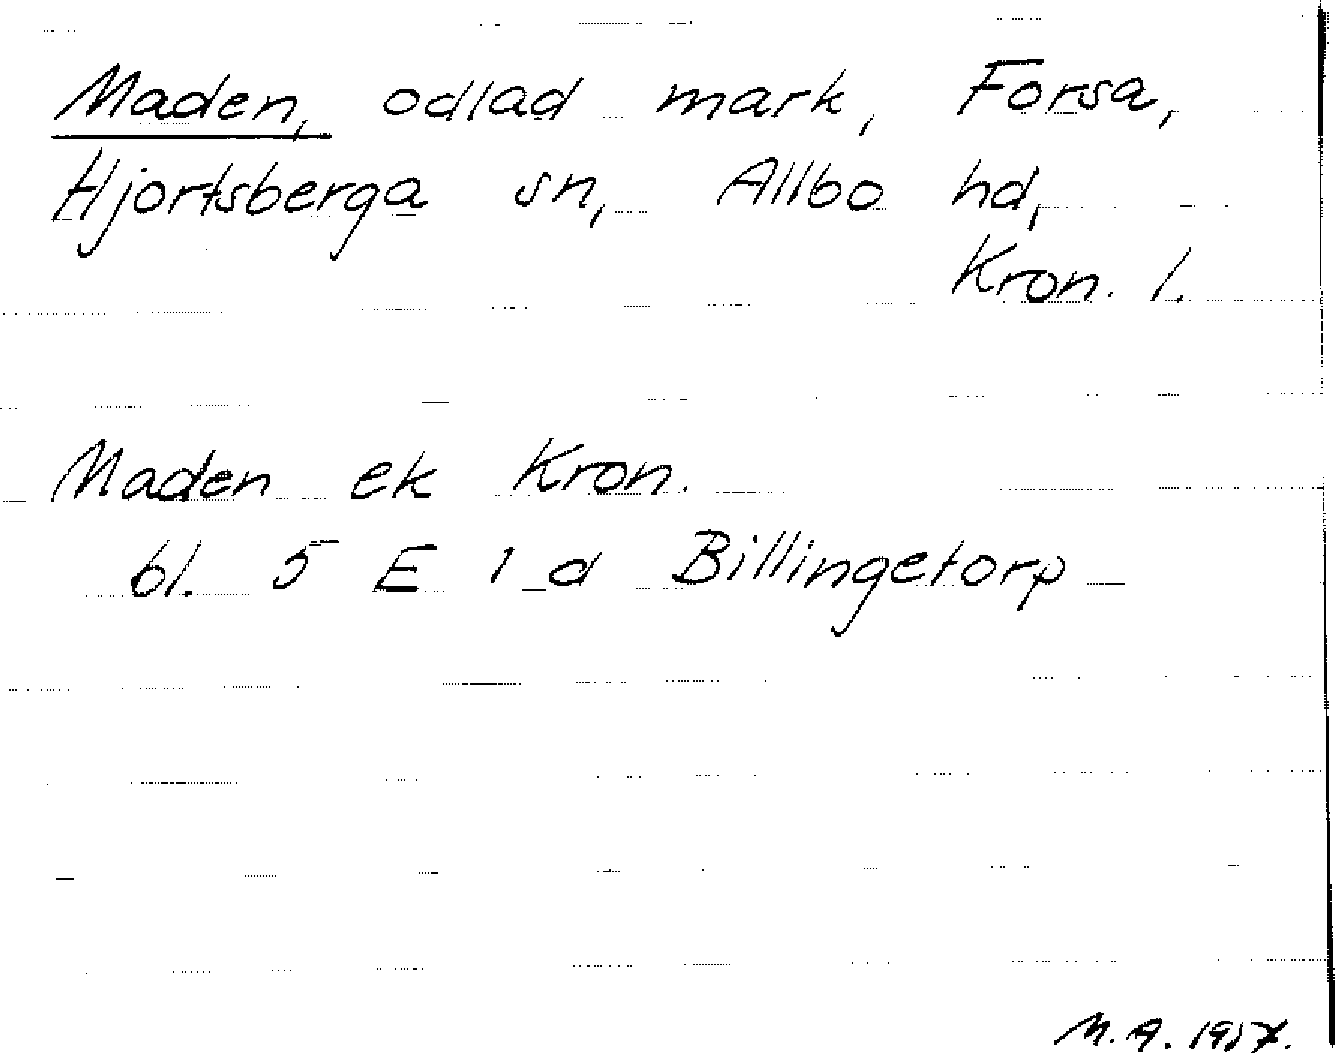 Maden, odlad mark, Forsa,
Hjortsberga sn, Allbo hd,
Kron. l.
Maden ek Kron.
bl. 5 E 1 d Billingetorp
M. A. 1957.